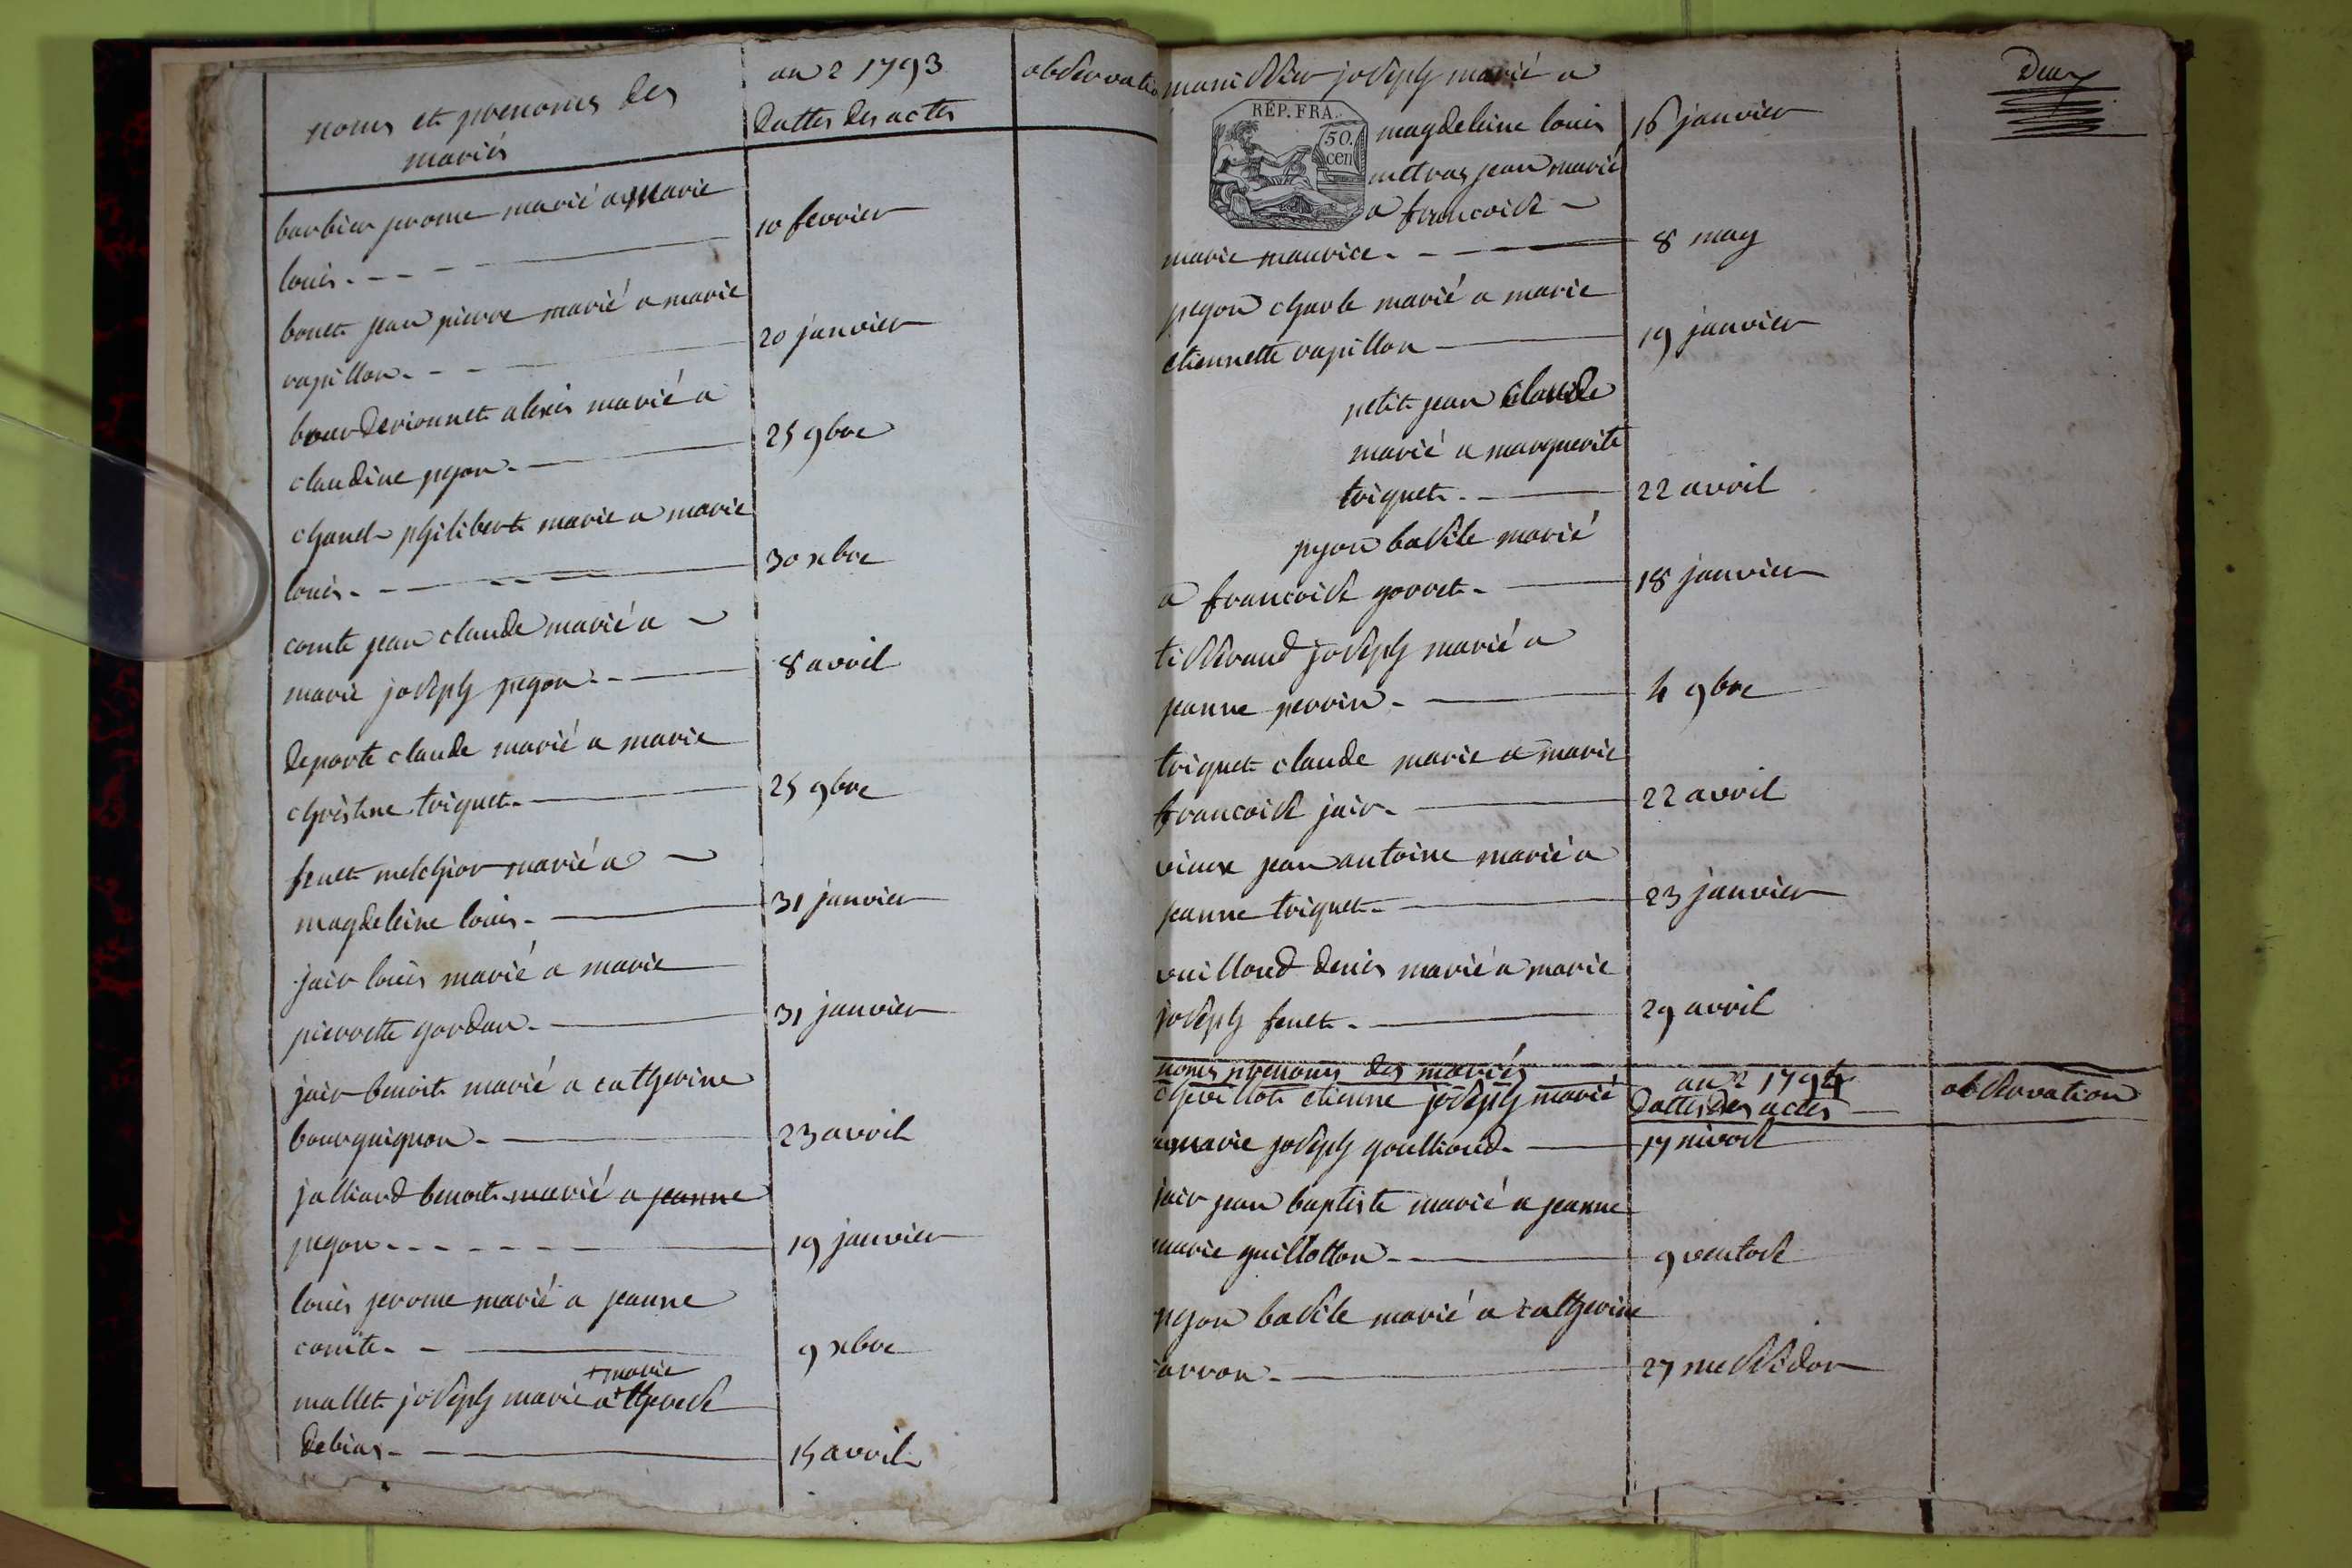 noms et prenoms des
mariés
an 2 1793
dattes des actes
observatio
barbier jerome marié a marie
louis
10 fevrier
bouet jean pierre marié a marie
vapillon
20 janvier
bourderionnet alexis marié a
claudine pegon
25 9bre
chanel philibert marie a marie
louis
30 xbre
comte jean claude marié a
marie joseph pegon
8 avril
deporte claude marié a marie
christine triquet
25 9bre
fenet melchior marié a
magdeleine louis
31 janvier
jair louis marié a marie
pierrette gordan
31 janvier
jair benoit marié a catherine
bourguignon
23 avril
jalliard benoit marié a jeanne
pegon
19 janvier
louis jerome marié a jeanne
comte
9 xbre
+ marie
mallet joseph marié a + therese
debias
15 avril
deux
manissier joseph marié a
RÉP. FRA.
50.
cen
magdeleine louis
16 janvier
metras jean marié
a francoise
marie maurice
8 may
pegon charle marié a marie
etiennette vapillon
19 janvier
petit jean claude
marié a marguerite
triquet
22 avril
pegon basile marié
a francoise gorret
18 janvier
tisserand joseph marié a
jeanne perrin
4 9bre
triquet claude marie a marie
francoise jair
22 avril
vieux jean antoine marié a
jeanne triquet
23 janvier
vuilloud denis marié a marie
joseph fenet
29 avril
noms prenoms des mariés
an 2 1794
dattes des actes
observation
chevillot etienne joseph marié
a marie joseph goullioud
17 nivose
jair jean baptiste marié a jeanne
marie guillotton
9 ventose
pegon basile marié a catherine
arvon
27 messidor